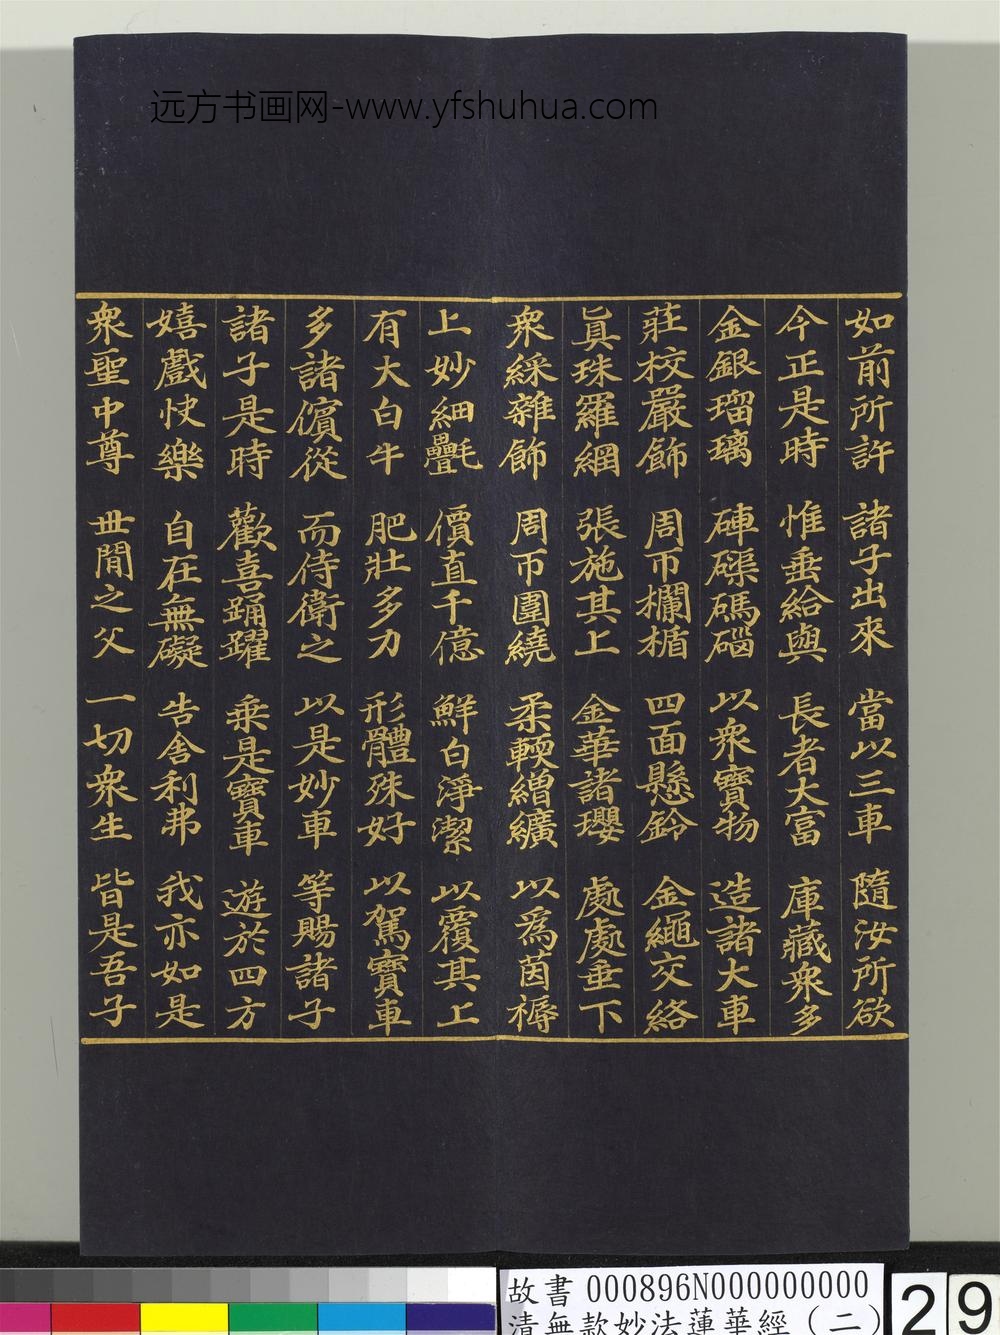 远方书画网-www.yfshuhua.com
如前所許 諸子出來 當以三車 隨汝所欲
今正是時 惟垂給與 長者大富 庫藏衆多
金銀瑠璃 硨磲碼碯 以衆寶物 造諸大車
莊校嚴飾 周帀欄楯 四面懸鈴 金繩交絡
眞珠羅網 張施其上 金華諸瓔 處處垂下
衆綵雜飾 周帀圍繞 柔輭繒纊 以爲茵褥
上妙細疊毛 價直千億 鮮白淨潔 以覆其上
有大白牛 肥壯多力 形體殊好 以駕寶車
多諸儐從 而侍衛之 以是妙車 等賜諸子
諸子是時 歡喜踊躍 乗是寶車 遊於四方
嬉戲快樂 自在無礙 告舍利弗 我亦如是
衆聖中尊 世間之父 一切衆生 皆是吾子
故書 000896N000000000
清無款妙法蓮華經（二）
29